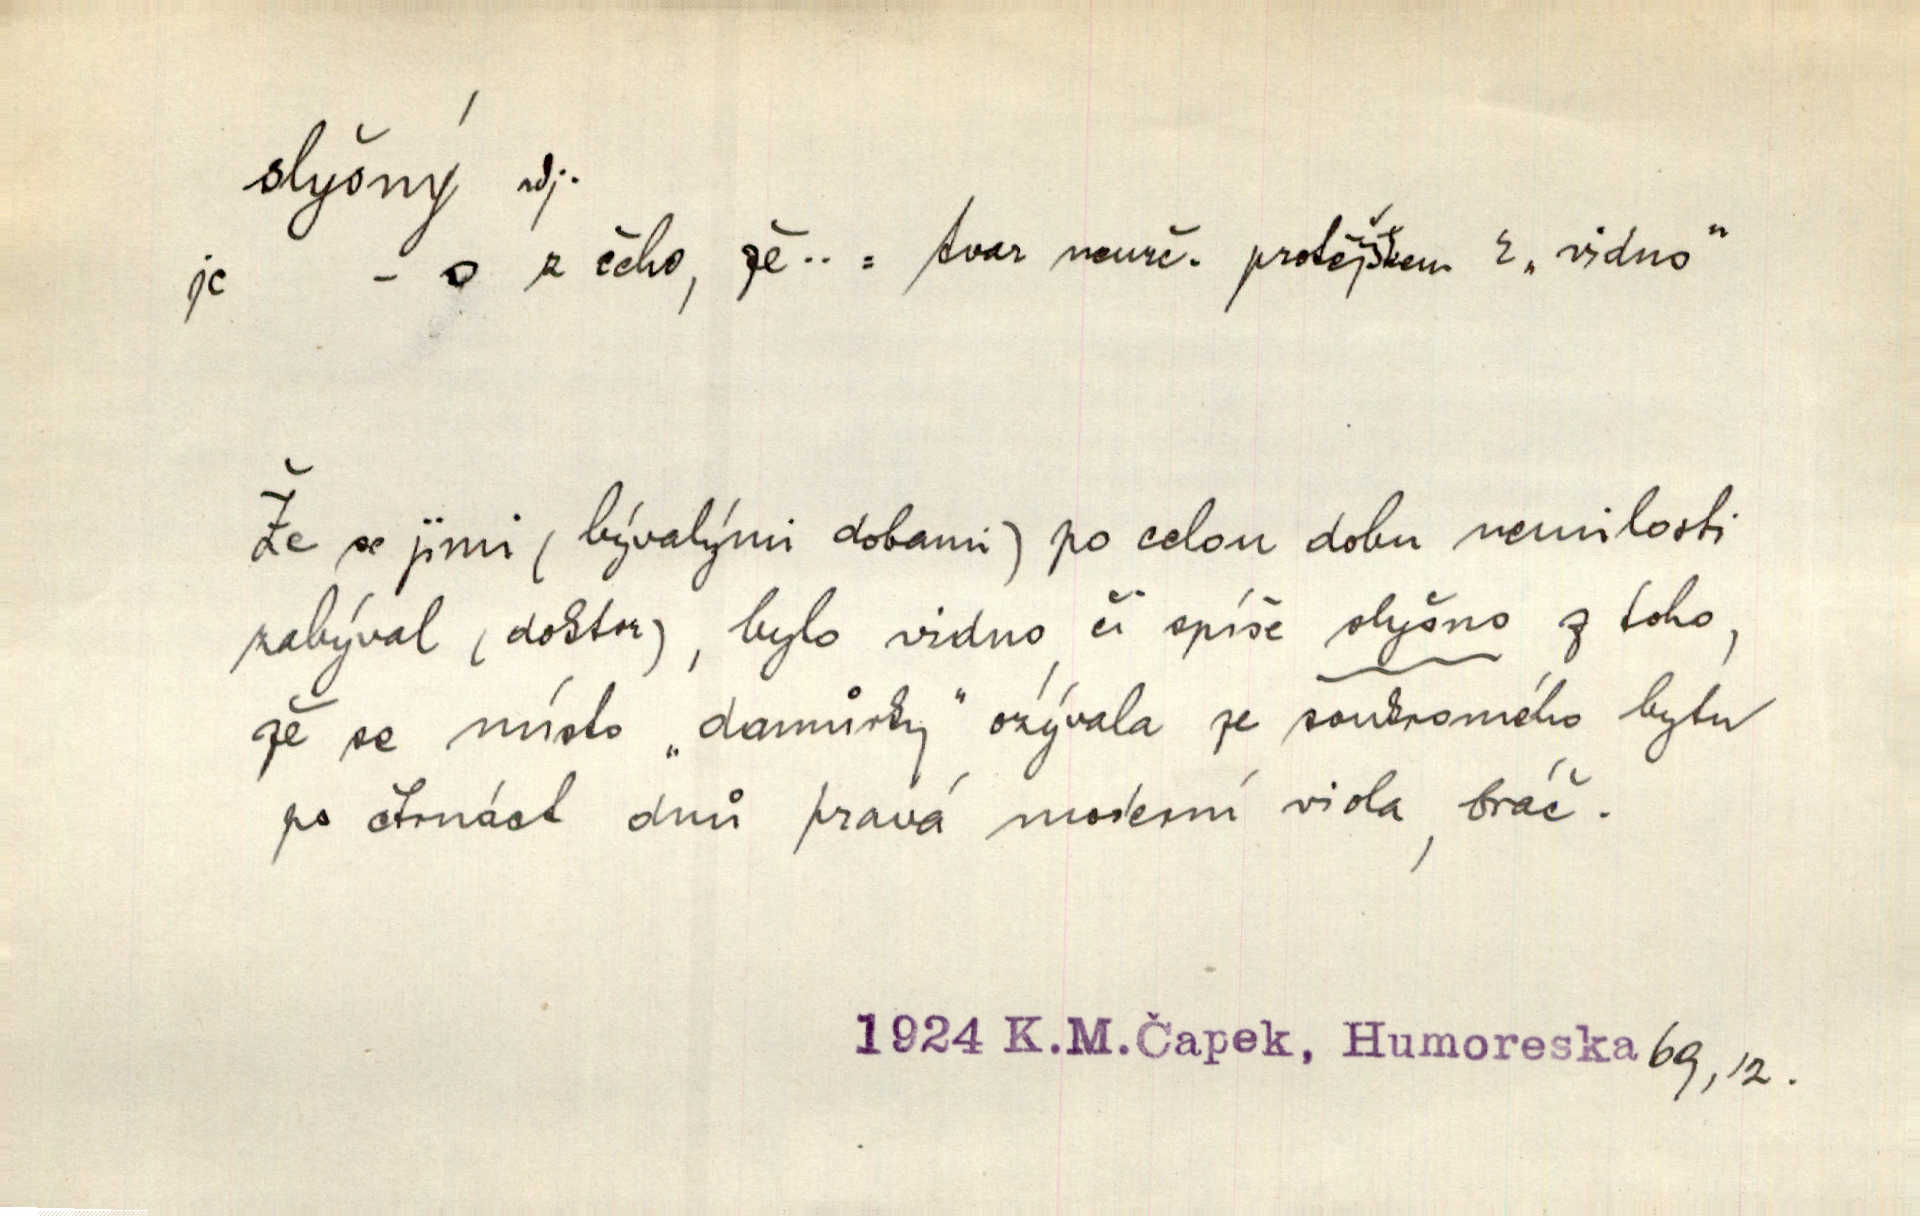 slyšný adj.
je – o z čeho, že.. = tvar neurč. protějškem k „vidno“
Že se jimi (bývalými dobami) po celou dobu nemilosti
zabýval (doktor), bylo vidno, či spíše slyšno z toho,
že se místo „damůrky“ ozývala ze soukromého bytu
po čtrnáct dnů pravá moderní viola, bráč.
1924 K.M.Čapek, Humoreska 69, 12.